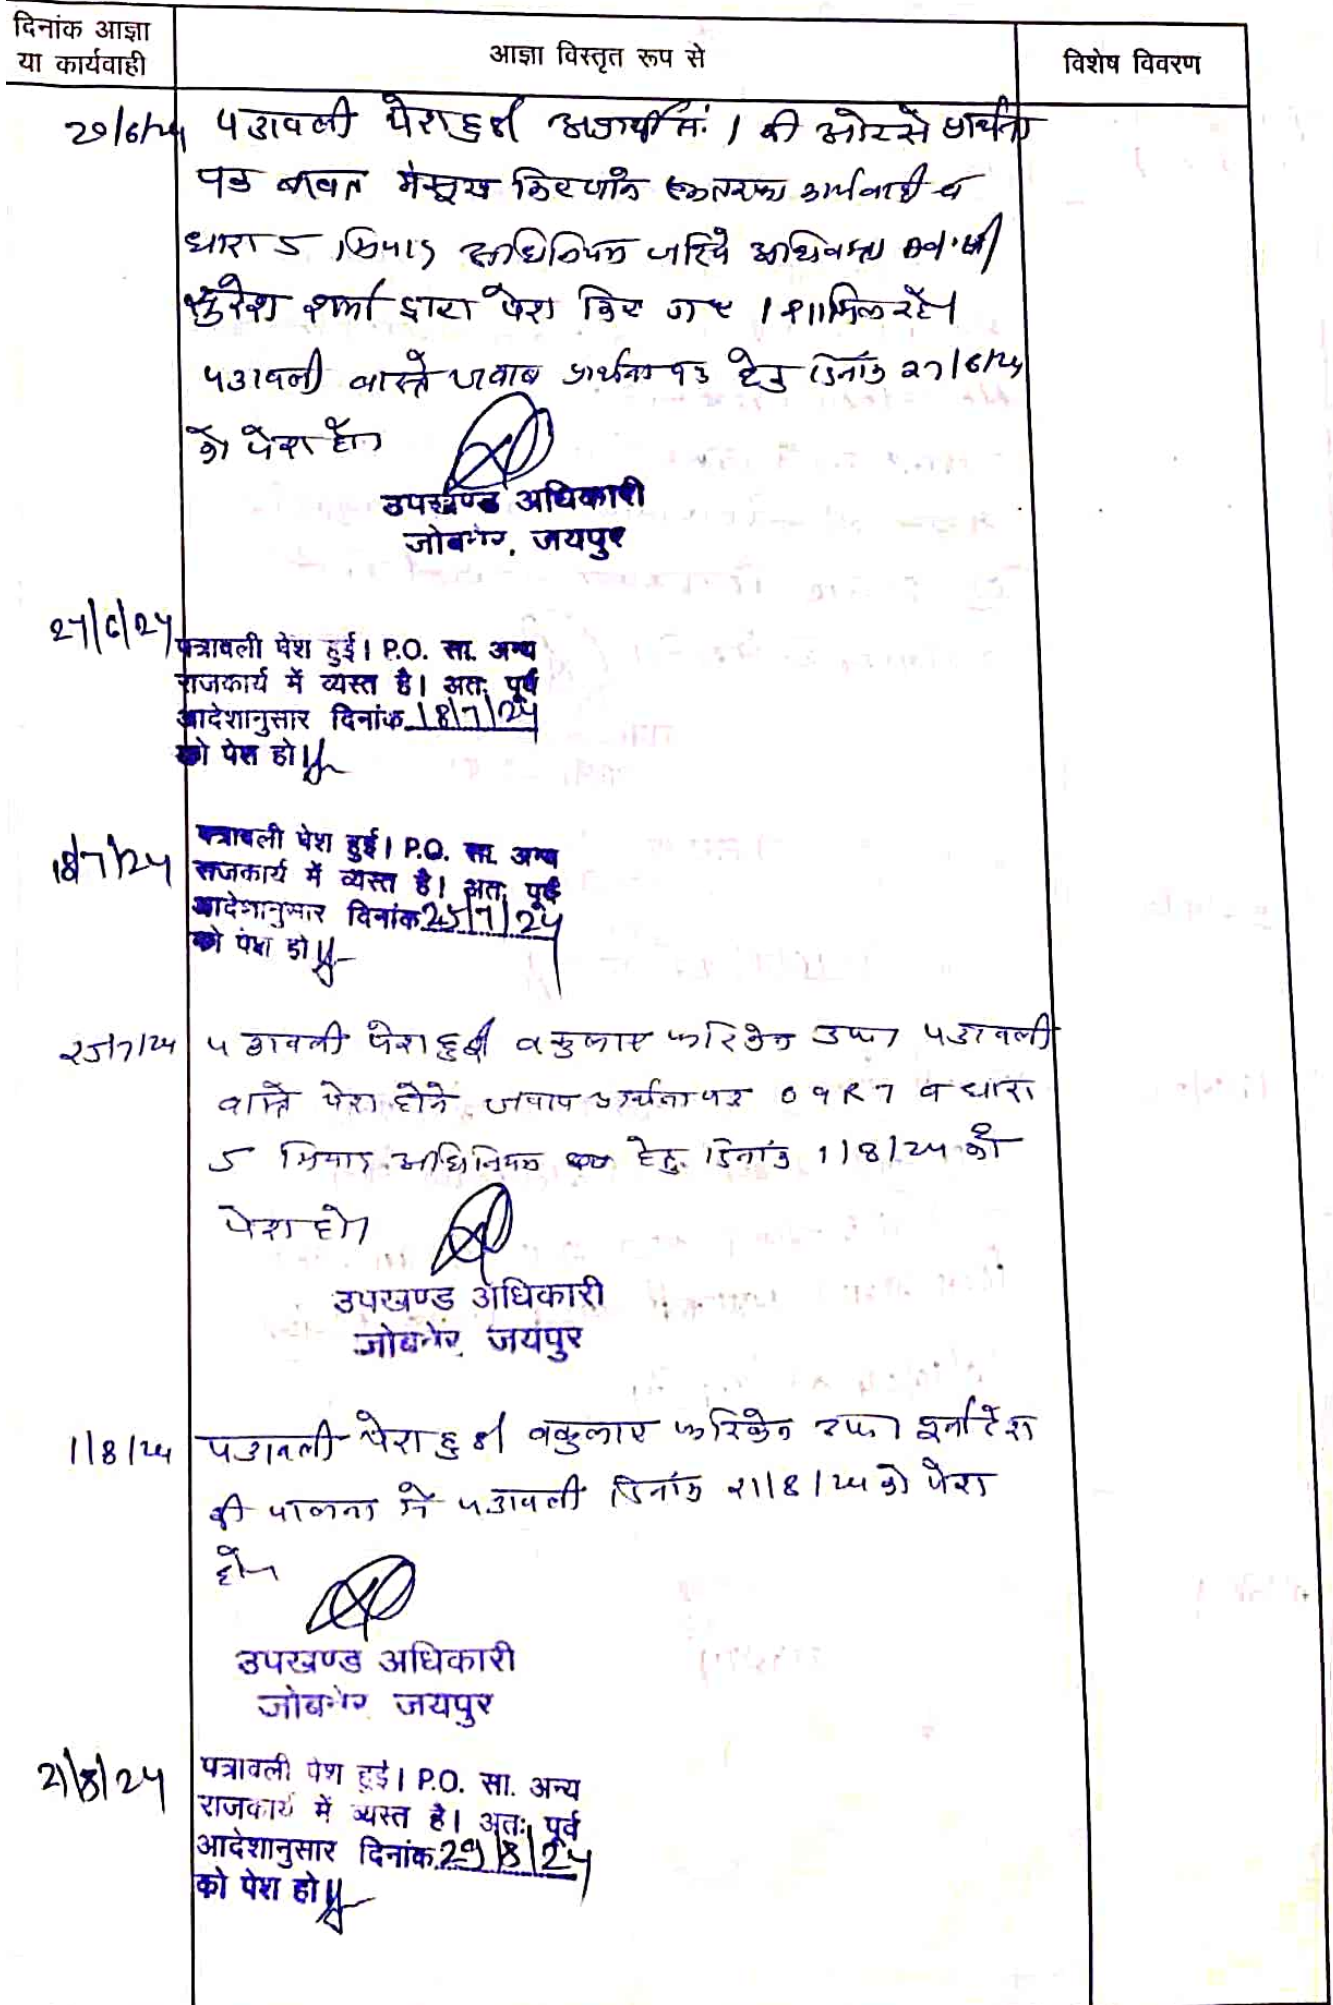 दिनांक आज्ञा
या कार्यवाही
आज्ञा विस्तृत रूप से
विशेष विवरण
20/6/24 पत्रावली पेश हुई अप्रार्थी सं. 1 की ओर से प्रार्थना
पत्र बाबत मंसूख किए जाने एकतरफा कार्यवाही व
धारा 5 मियाद अधिनियम जरिये अधिवक्ता श्री
सुरेश शर्मा द्वारा पेश किए गए। शामिल रहे।
पत्रावली वास्ते जवाब प्रार्थना पत्र हेतु दिनांक 27/6/24
को पेश हो।
उपखण्ड अधिकारी
जोबनेर, जयपुर
27/6/24
पत्रावली पेश हुई। P.O. सा. अन्य
राजकार्य में व्यस्त है। अतः पूर्व
आदेशानुसार दिनांक 18/7/24
को पेश हो।
18/7/24
पत्रावली पेश हुई। P.O. सा. अन्य
राजकार्य में व्यस्त है। अतः पूर्व
आदेशानुसार दिनांक 25/7/24
को पेश हो।
25/7/24 पत्रावली पेश हुई वकुलाए फरिकेन उप० पत्रावली
वास्ते पेश होने जवाब प्रार्थना पत्र O 9 R 7 व धारा
5 मियाद अधिनियम हेतु दिनांक 1/8/24 को
पेश हो।
उपखण्ड अधिकारी
जोबनेर, जयपुर
1/8/24 पत्रावली पेश हुई वकुलाए फरिकेन उप०
की पालना में पत्रावली दिनांक 21/8/24 को पेश
हो।
उपखण्ड अधिकारी
जोबनेर जयपुर
21/8/24
पत्रावली पेश हुई। P.O. सा. अन्य
राजकार्य में व्यस्त है। अतः पूर्व
आदेशानुसार दिनांक 29/8/24
को पेश हो।